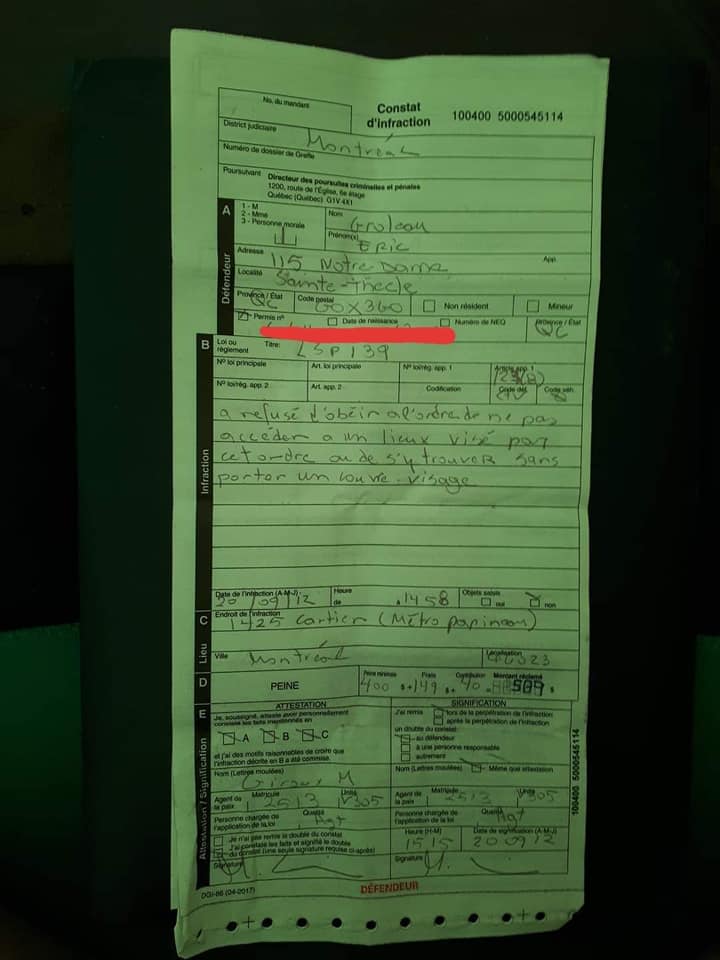 No. du mandant
Constat d'infraction 100400 5000545114
District judiciaire
Montréal
Numéro de dossier de Greffe
Poursuivant Directeur des poursuites criminelles et pénales
1200, route de l'Église, 6e étage
Québec (Québec) G1V 4X1
A Défendeur
1 - M
2 - Mme
3 - Personne morale
Nom
Groleau
Prénom(s)
ERIC
Adresse App.
115 Notre Dame
Localité
Sainte-Thecle
Province / État Code postal Non résident Mineur
QC G0X3G0
Permis n° Date de naissance Numéro de NEQ Province / État
QC
B Infraction
Loi ou règlement Titre: LSP 139
N° loi principale Art. loi principale N° loi/règ. app. 1 Article app. 1
N° loi/règ. app. 2 Art. app. 2 Codification Code dél. Code véh.
a refusé d'obéir a l'ordre de ne pas
accéder a un lieux visé par
cet ordre ou de s'y trouver sans
porter un couvre-visage
Date de l'infraction (A-M-J) Heure Objets saisis
20/09/12 de à 1458 oui non
C Lieu
Endroit de l'infraction
1425 Cartier (Métro papineau)
Ville Localisation
Montréal
D PEINE
Peine minimale Frais Contribution Montant réclamé
400 $ + 149 $ + 40 = 589 $
E Attestation / Signification
ATTESTATION
Je, soussigné, atteste avoir personnellement
constaté les faits mentionnés en
A B C
et j'ai des motifs raisonnables de croire que
l'infraction décrite en B a été commise.
Nom (Lettres moulées)
Giroux M
Agent de la paix Matricule Unité
2513 V305
Personne chargée de l'application de la loi Qualité
Agt
Je n'ai pas remis le double du constat
J'ai constaté les faits et signifié le double
du constat (une seule signature requise ci-après)
Signature
SIGNIFICATION
J'ai remis lors de la perpétration de l'infraction
après la perpétration de l'infraction
un double du constat:
au défendeur
à une personne responsable
autrement
Nom (Lettres moulées) Même que attestation
Agent de la paix Matricule Unité
2513 V305
Personne chargée de l'application de la loi Qualité
Agt
Heure (H-M) Date de signification (A-M-J)
1515 20 09 12
Signature
100400 5000545114
DGI-86 (04-2017)
DÉFENDEUR